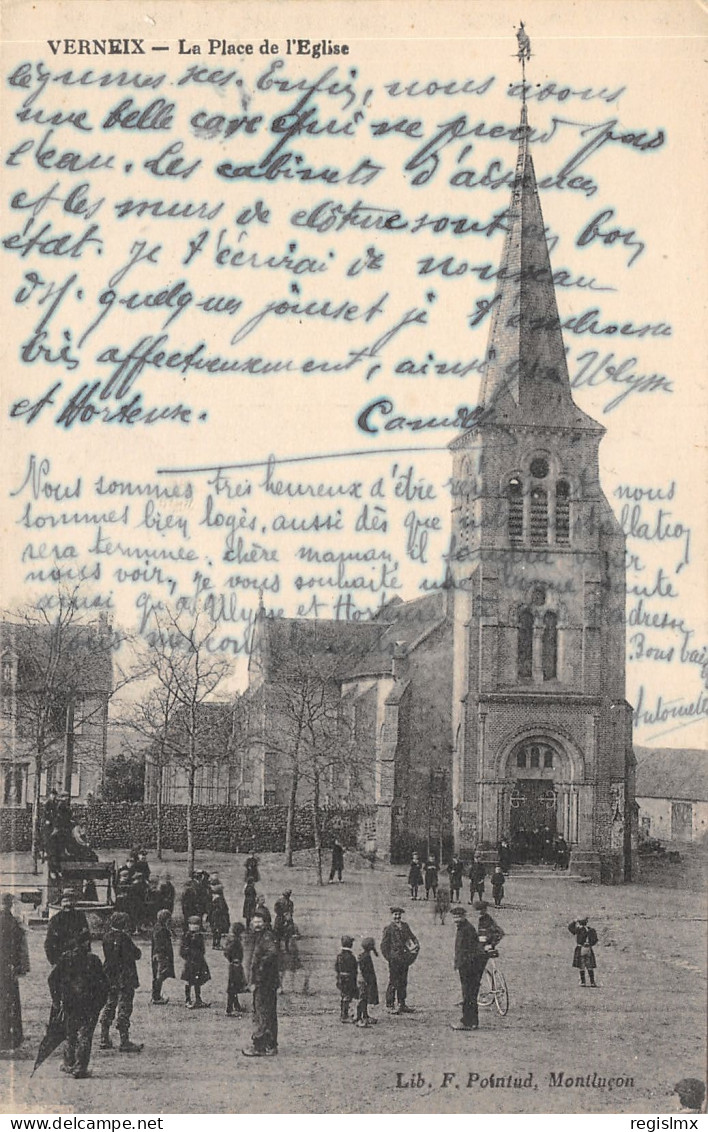 VERNEIX — La Place de l'Eglise
légumes secs. Enfin, nous avons
une belle cave qui ne prend pas
l'eau. Les cabinets d'aisances
et les murs de clôture sont en bon
état. Je t'écrirai de nouveau
dans quelques jours et je t'embrasse
bis affectueusement, ainsi que Ulysse
et Hortense.
Camille
Nous sommes très heureux d'être nous
sommes bien logés, aussi dès que notre installation
sera terminée chère maman, il faudra venir
nous voir, je vous souhaite une bonne santé
ainsi qu'à Ulysse et Hortense
Bons baisers
Antoinette
Lib. F. Pointud, Montluçon
regislmx regislmx.delcampe.net